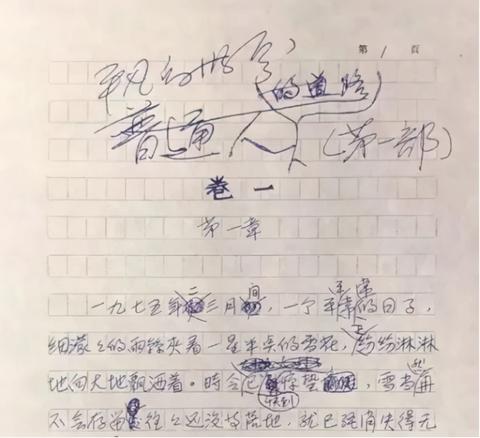 第1頁
平凡的世界
(的道路)
普通人(第一部)
卷一
第一章
一九七五年二三月间,一个平平常常的日子,
细濛々的雨丝夹着一星半点的雪花,正纷纷淋淋
地向大地飘洒着。时令已快到惊蛰,雪当然再
不会存留,往々还没等落地,就已经消失得无